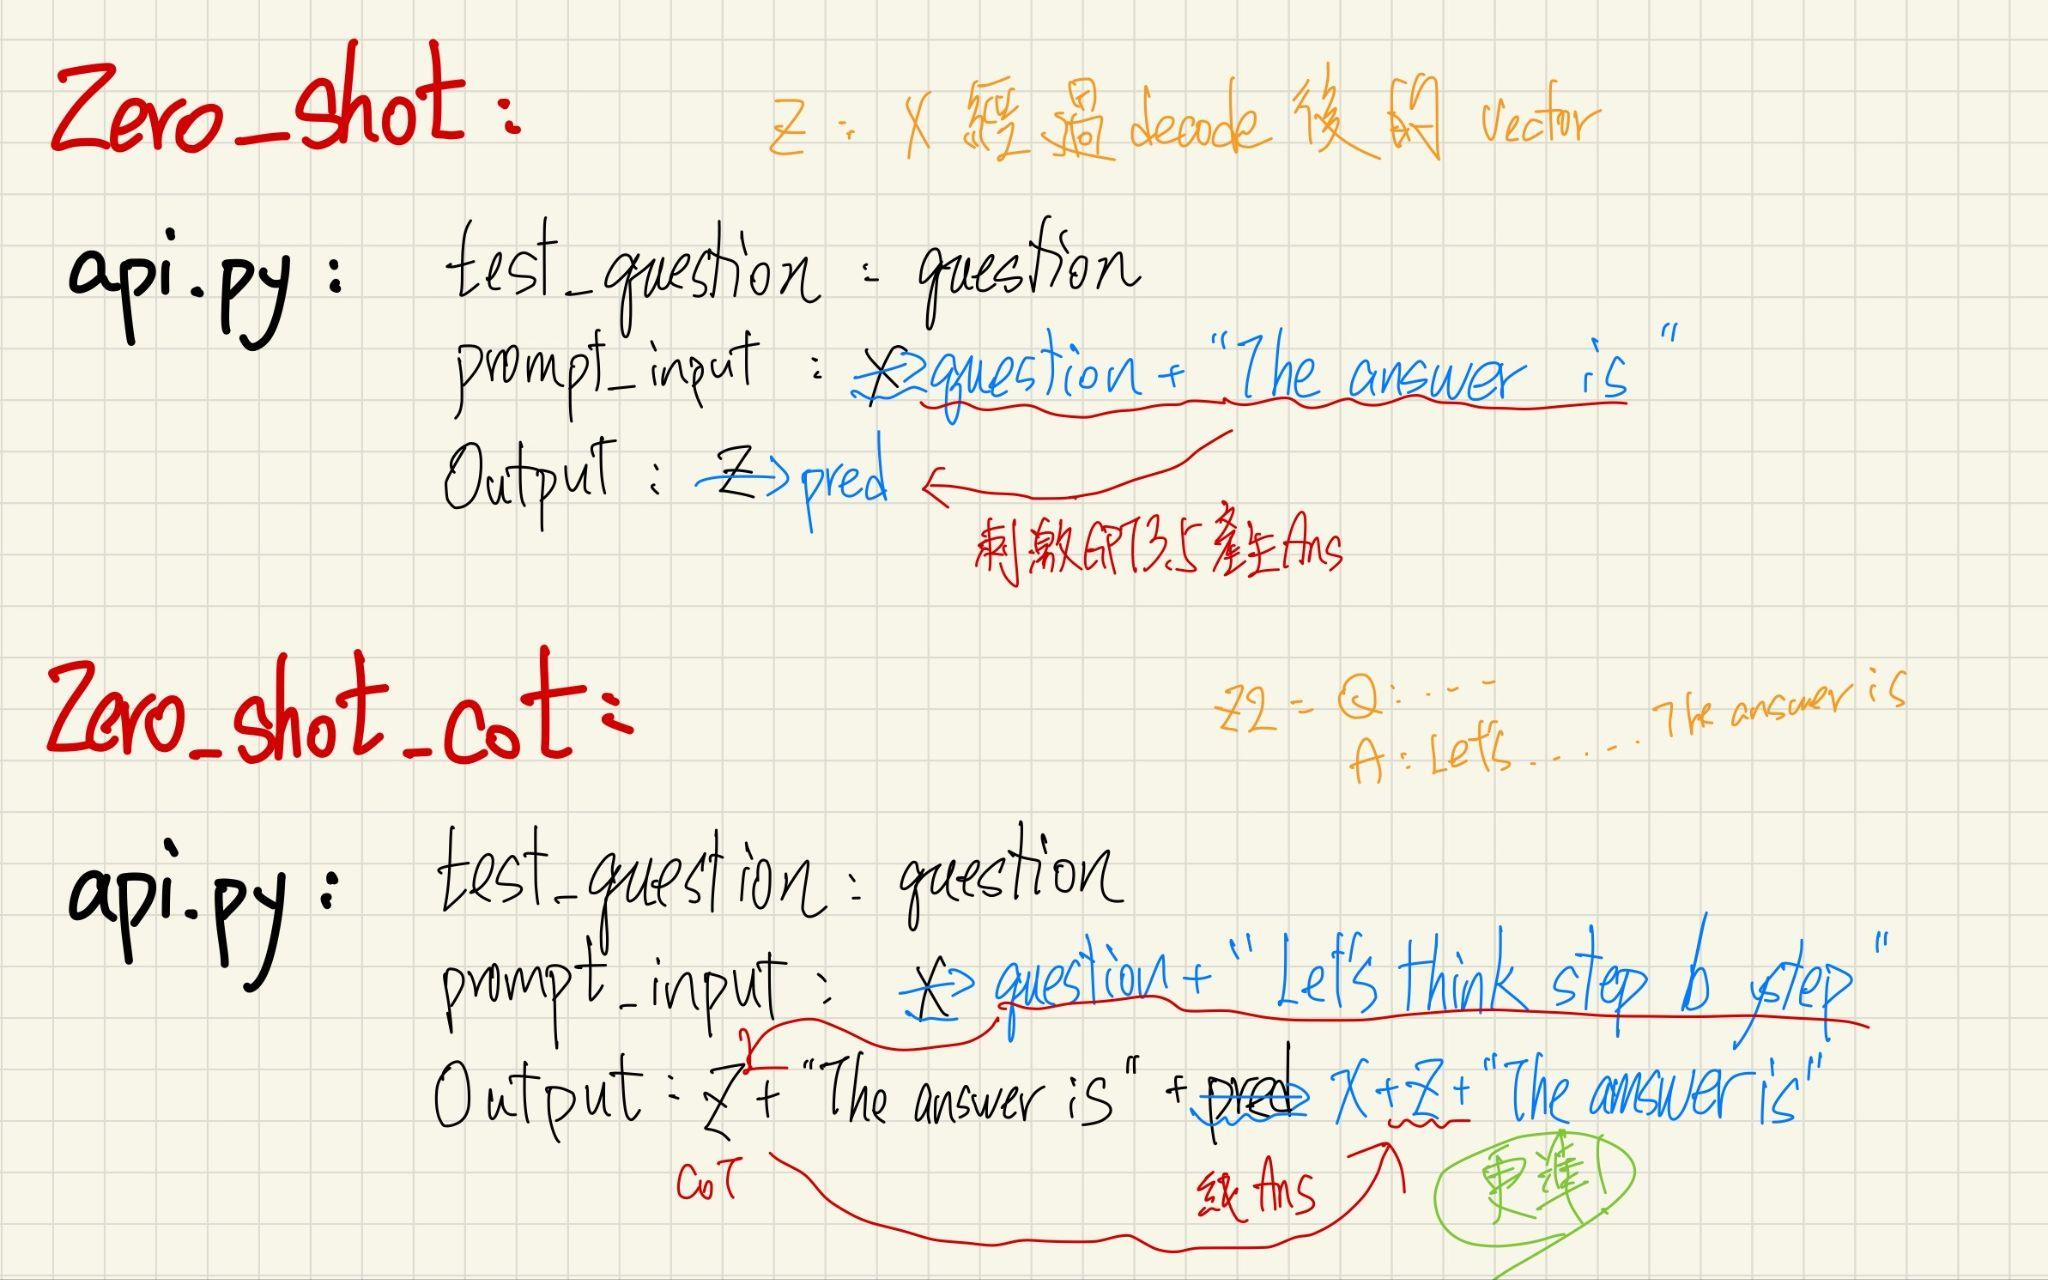 Zero_shot:
Z: X 經過 decode 後的 vector
api.py: test_question: question
prompt_input: X → question + "The answer is"
Output: Z → pred
刺激GPT3.5產生Ans
Zero_shot_cot:
Z2 = Q: ...
A: Let's ...... The answer is
api.py: test_question: question
prompt_input: X → question + "Let's think step b ystep"
Output: Z + "The answer is" + pred → X + Z + "The answer is"
CoT
Ans
更準!